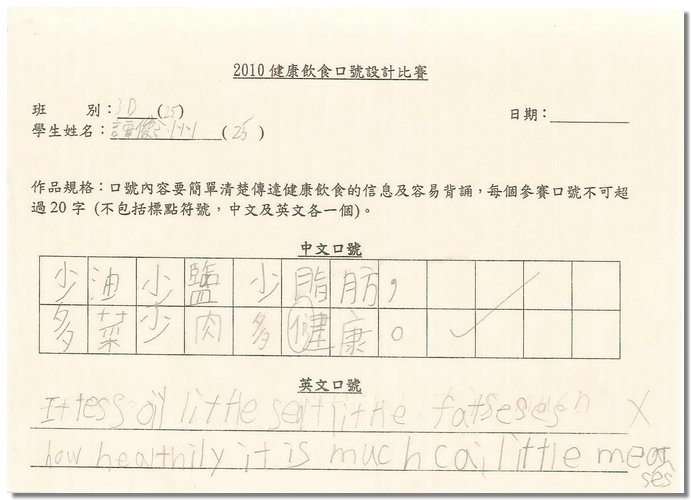 2010 健康飲食口號設計比賽
班 別：3D (25)
日期：
學生姓名： (25)
作品規格：口號內容要簡單清楚傳達健康飲食的信息及容易背誦，每個參賽口號不可超
過20字 (不包括標點符號，中文及英文各一個)。
中文口號
少油少鹽少脂肪，
多菜少肉多健康。
英文口號
oil little little
how healthily it is much cai little meat
ses